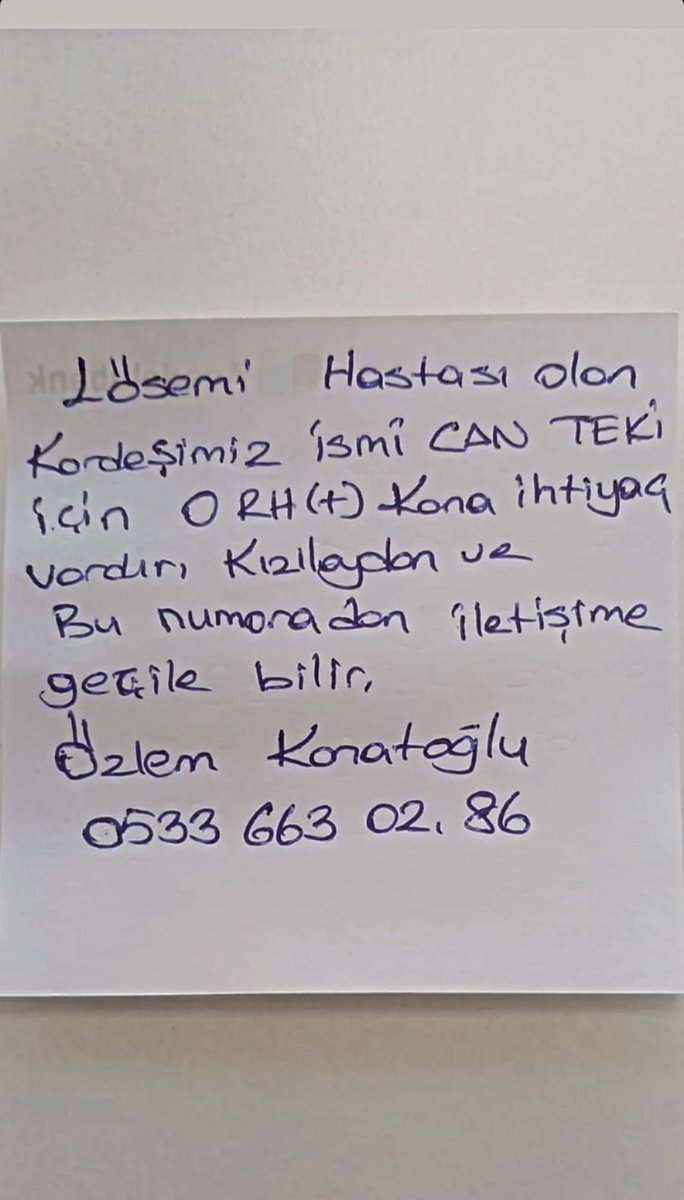 Lösemi Hastası olan
Kardeşimiz ismi CAN TEKİ
için O RH(+) Kana ihtiyaç
vardır, Kızılaydan ve
Bu numaradan iletişime
geçile bilir,
Özlem Karatoğlu
0533 663 02. 86